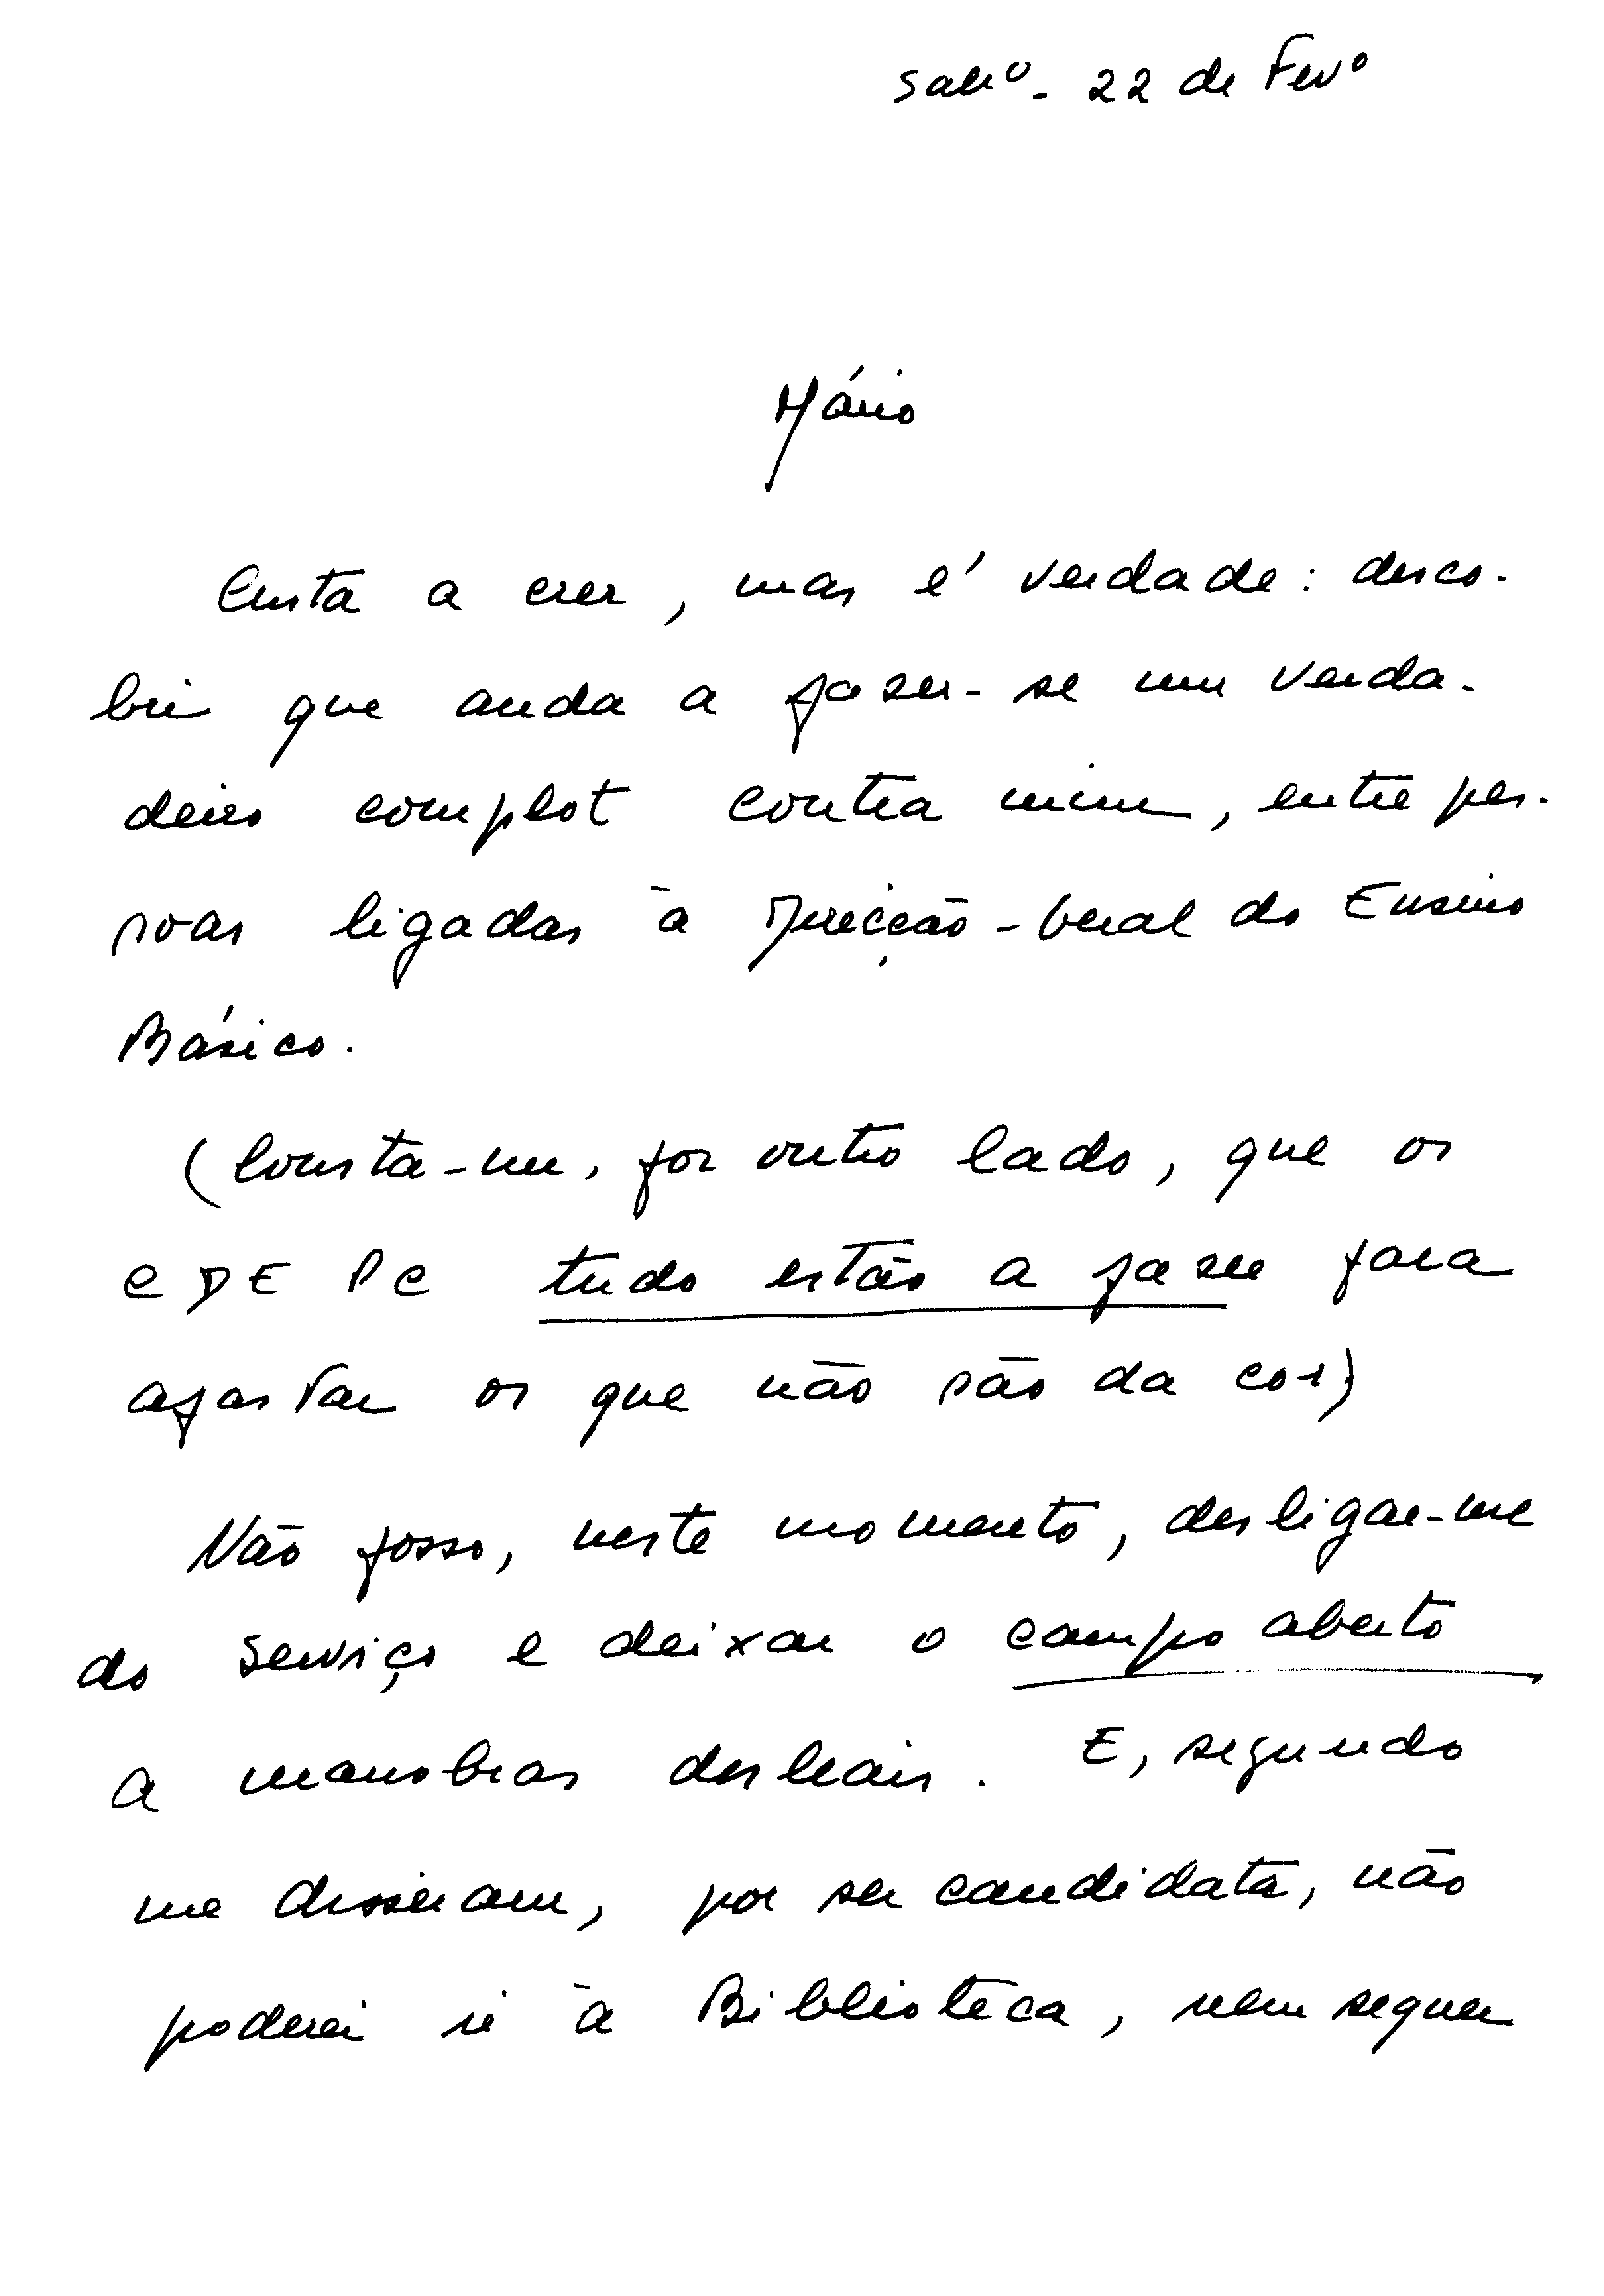 Sabº - 22 de Fevº
Mário
Custa a crer, mas é verdade: desco-
bri que anda a fazer-se um verda-
deiro complot contra mim, entre pes-
soas ligadas à Direcção-Geral do Ensino
Básico.
(Consta-me, por outro lado, que os
CDE PC tudo estão a fazer para
afastar os que não são da cor)
Não posso, neste momento, desligar-me
do serviço e deixar o campo aberto
a manobras desleais. E, segundo
me disseram, por ser candidata, não
poderei ir à Biblioteca, nem sequer